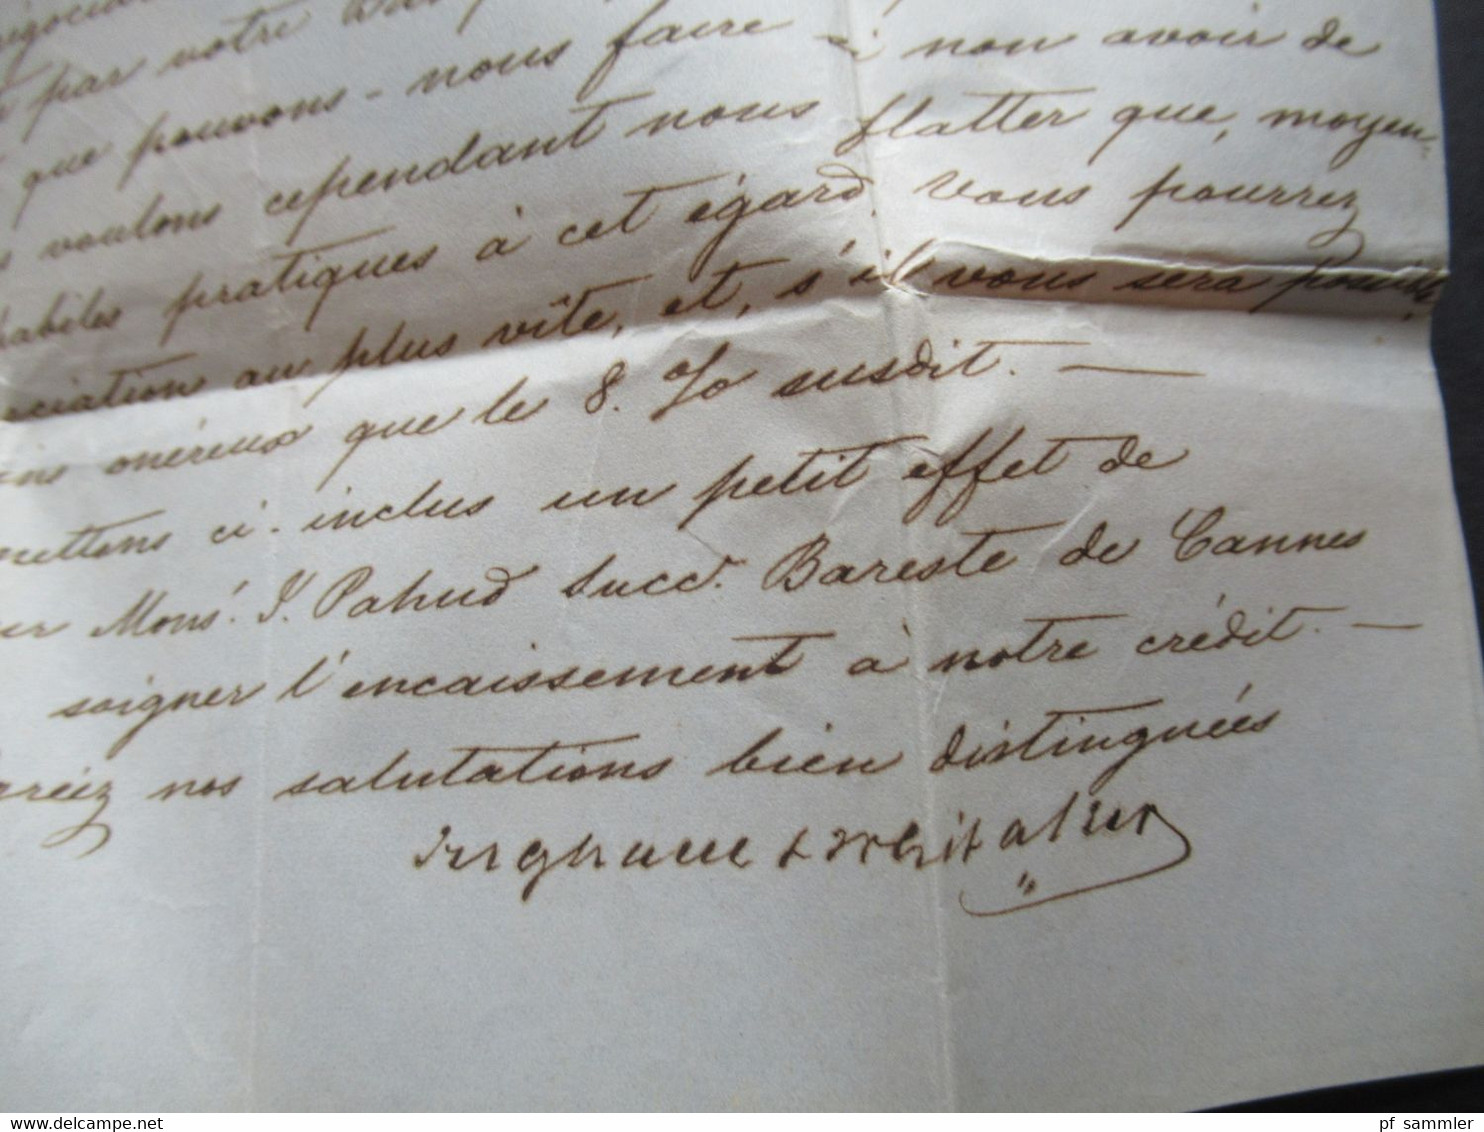 par votre
que pouvons-nous faire si non avoir de
voulons cependant nous flatter que, moyen-
habiles pratiques à cet égard, vous pourrez
au plus vîte, et, s'il vous sera possible,
onéreux que le 8. % susdit. —
mettons ci-inclus un petit effet de
Mons.r J. Pahud Succ.r Bareste de Cannes
soigner l'encaissement à notre crédit. —
nos salutations bien distinguées
Ingham & Whitaker
delcampe.net
pf_sammler